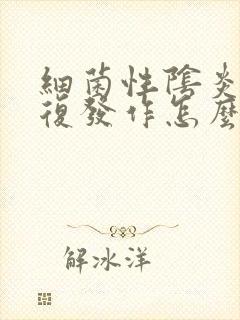 細菌性陰炎
復發作怎麼
解冰洋